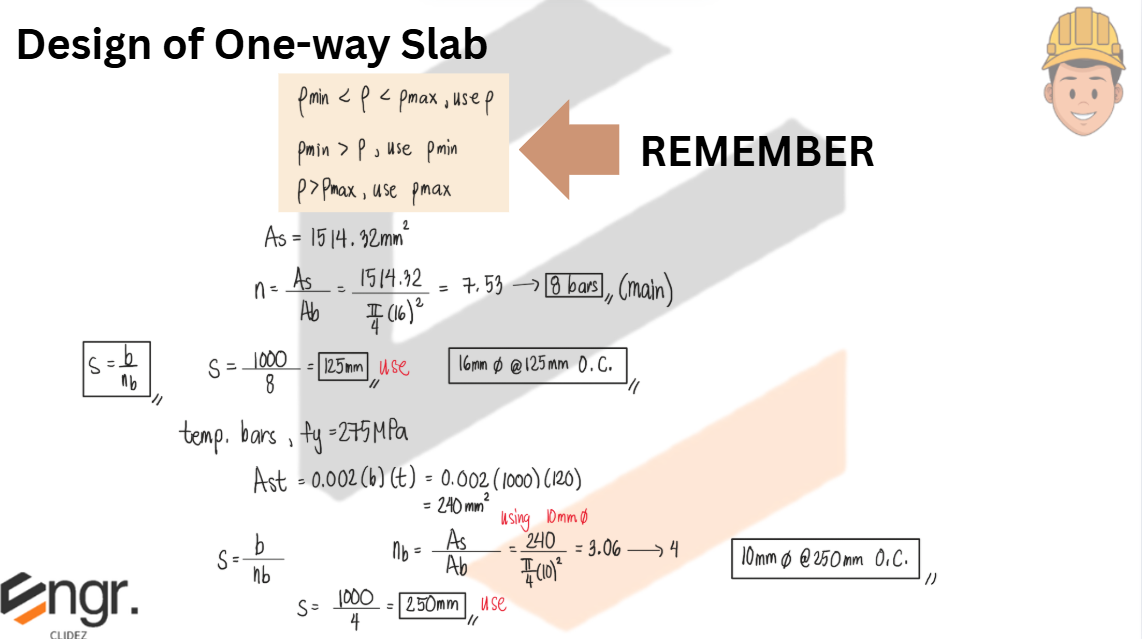 Design of One-way Slab
ρmin < ρ < ρmax, use ρ
ρmin > ρ, use ρmin
ρ > ρmax, use ρmax
REMEMBER
As = 1514.32mm²
n = As/Ab = 1514.32/(π/4 (16)²) = 7.53 → 8 bars,, (main)
S = b/nb,,
S = 1000/8 = 125mm,, use
16mm ϕ @ 125mm O.C.,,
temp. bars, fy = 275MPa
Ast = 0.002(b)(t) = 0.002(1000)(120)
= 240mm²
using 10mm ϕ
S = b/nb
nb = As/Ab = 240/(π/4 (10)²) = 3.06 → 4
10mm ϕ @ 250mm O.C.,,
S = 1000/4 = 250mm,, use
Engr.
CLIDEZ